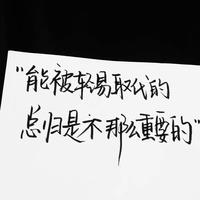 "能被轻易取代的
总归是不那么重要的"